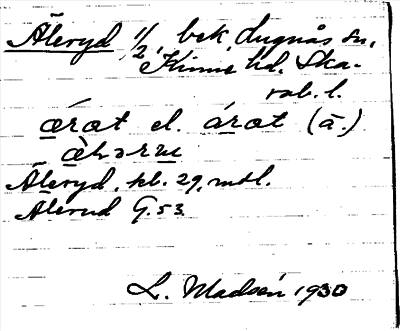 Äleryd 1/2, bek. Lugnås sn,
Kinne hd. Ska-
rab. l.
ǽrǝt el. árǝt (ā.)
Äleryd, kl. 29, mtl.
Alerud G. 53
L. Madsén 1930